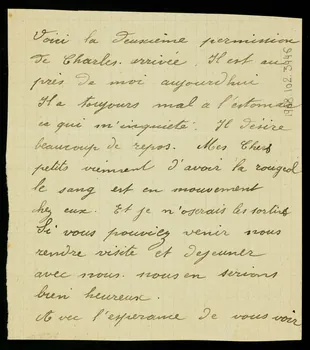 Voici la deuxième permission
de Charles arrivée. Il est au
près de moi aujourdhui
Il a toujours mal a l'estomac
ce qui m'inquiète. Il désire
beaucoup de repos. Mes Chers
petits viennent d'avoir la rougeol
le sang est en mouvement
chez eux. Et je n'oserais les sortir
Si vous pouviez venir nous
rendre visite et dejeuner
avec nous. nous en serions
bien heureux.
Avec l'espérance de vous voir